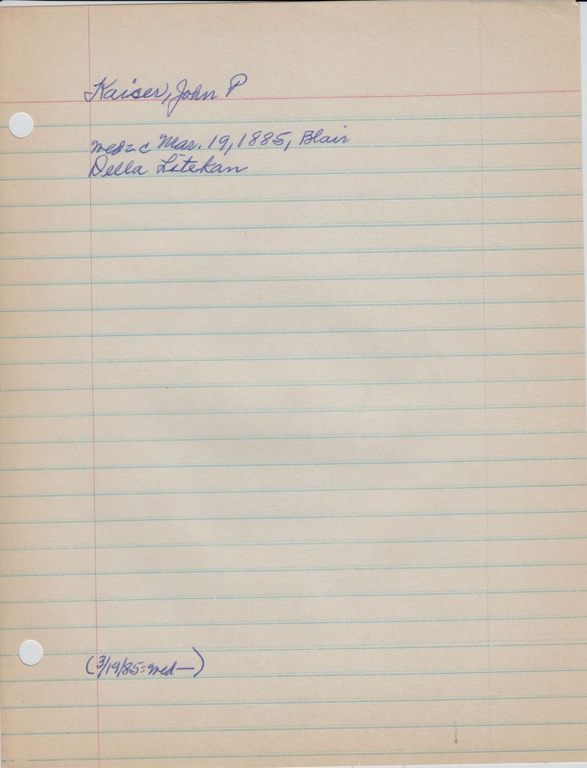 Kaiser, John P
Mar. 19, 1885, Blair
Della Litekan
(3/19/85=med—)